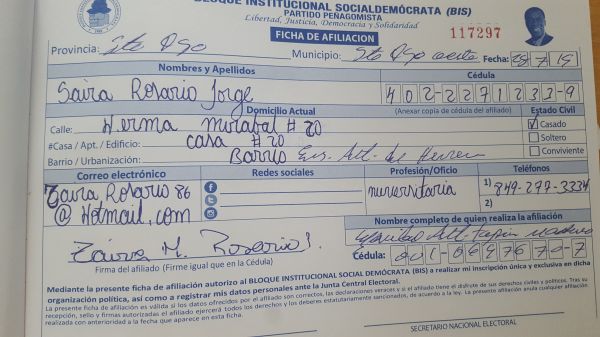 BLOQUE INSTITUCIONAL SOCIALDEMÓCRATA (BIS)
PARTIDO PEÑAGOMISTA
Libertad, Justicia, Democracia y Solidaridad
FICHA DE AFILIACION
117297
Provincia: Sto Dgo Municipio: Sto Dgo oeste Fecha: 28 7 19
Nombres y Apellidos Cédula
Saira Rosario Jorge 402-2271233-9
Domicilio Actual (Anexar copia de cédula del afiliado) Estado Civil
Calle: Herma mirabal # 20 Casado
#Casa / Apt. / Edificio: casa # 20 Soltero
Barrio / Urbanización: Barrio Conviviente
Correo electrónico Redes sociales Profesión/Oficio Teléfonos
Zaira Rosario 86 universitaria 1) 849-277-3334
@ Hotmail.com 2)
Nombre completo de quien realiza la afiliación
Zaira M. Rosario J.
Cédula: 001-0697670-7
Firma del afiliado (Firme igual que en la Cédula)
Mediante la presente ficha de afiliación autorizo al BLOQUE INSTITUCIONAL SOCIALDEMÓCRATA (BIS) a realizar mi inscripción única y exclusiva en dicha
organización política, así como a registrar mis datos personales ante la Junta Central Electoral.
La presente ficha de afiliación es válida si los datos ofrecidos por el afiliado son correctos, las declaraciones veraces y si el afiliado tiene el disfrute de sus derechos civiles y políticos. Tras su
recepción, sello y firmas autorizadas el afiliado ejercerá todos los derechos y los deberes estatutariamente sancionados, de acuerdo a la ley. La presente afiliación anula cualquier afiliación
realizada con anterioridad a la fecha que aparece en esta ficha.
SECRETARIO NACIONAL ELECTORAL